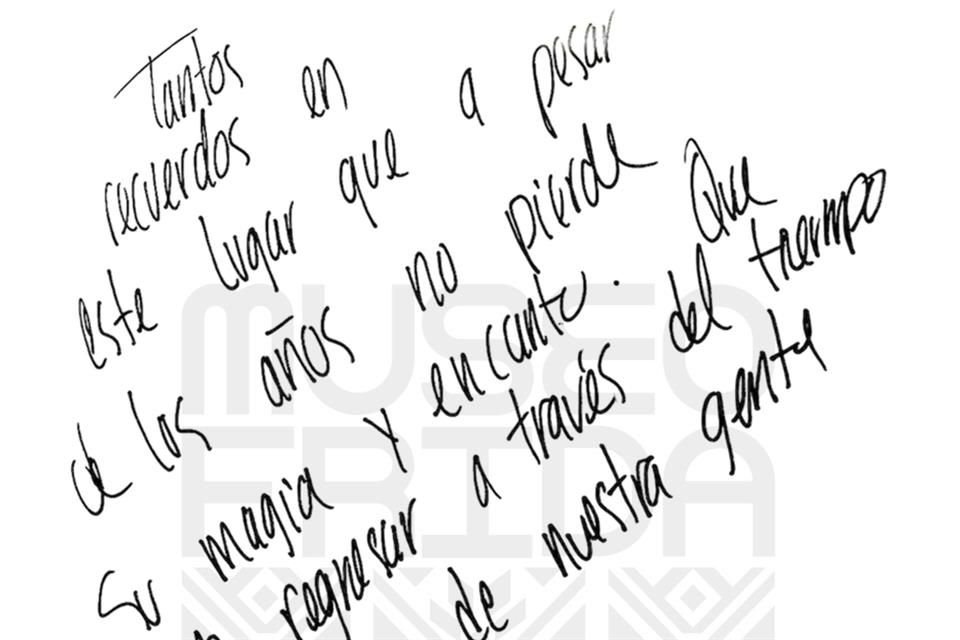 Tantos
recuerdos en
este lugar que a pesar
de los años no pierde
su magia y encanto. Que
regresar a través del tiempo
de nuestra gente
MUSEO
FRIDA